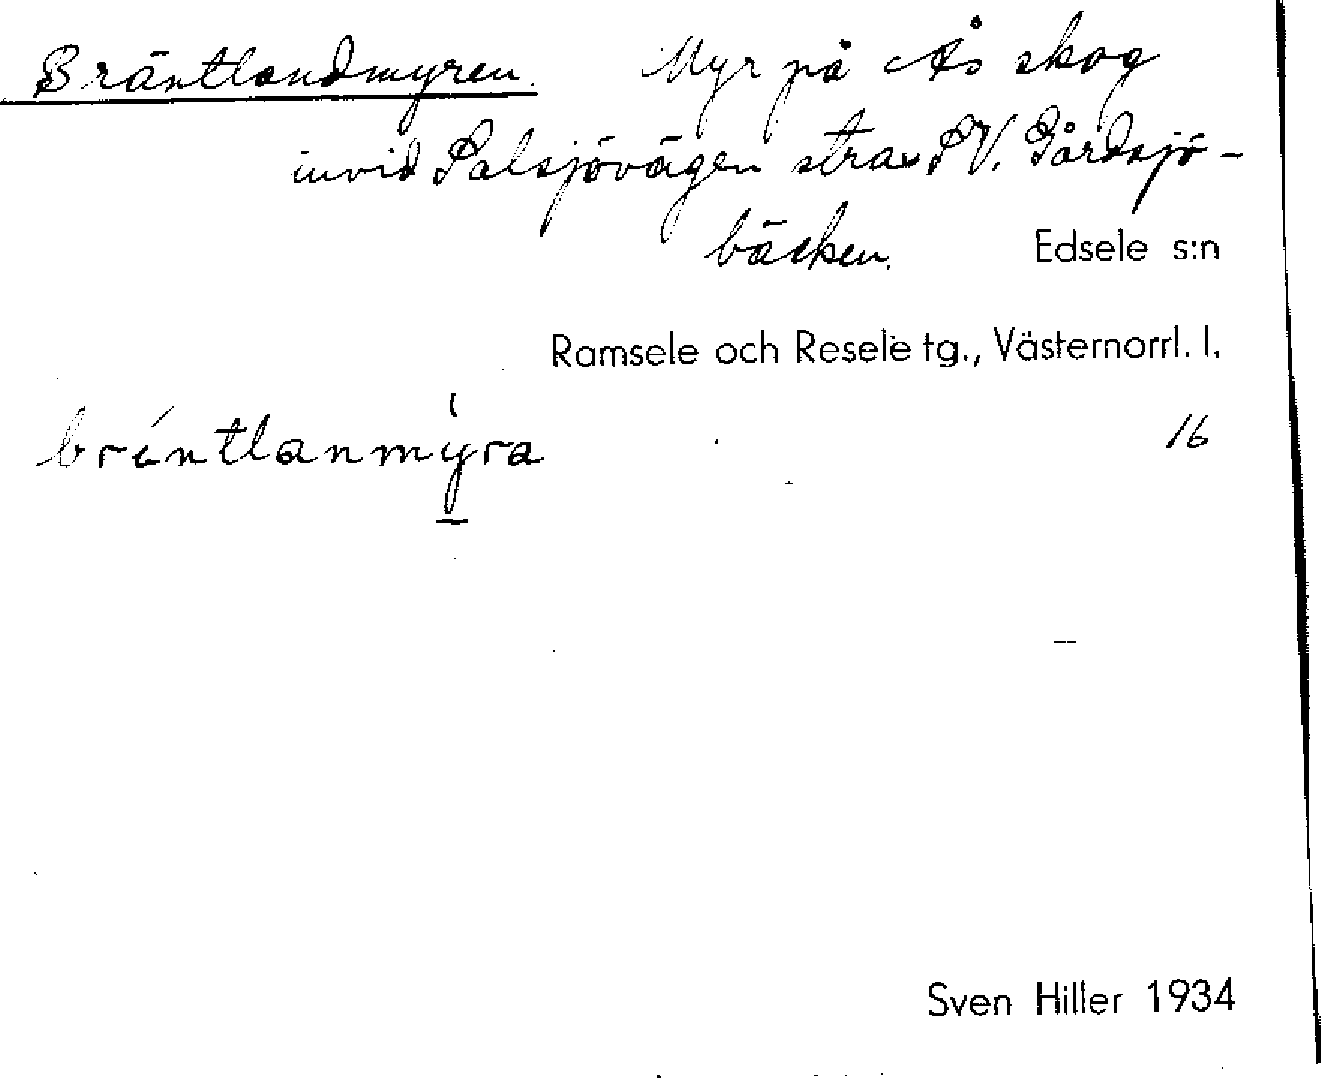 Bräntlandmyren. Myr på Ås skog
invid Salsjövägen strax SV. Gårdsjö-
bäcken. Edsele s:n
Ramsele och Resele tg., Västernorrl. l.
bréntlanmyra 16
Sven Hiller 1934